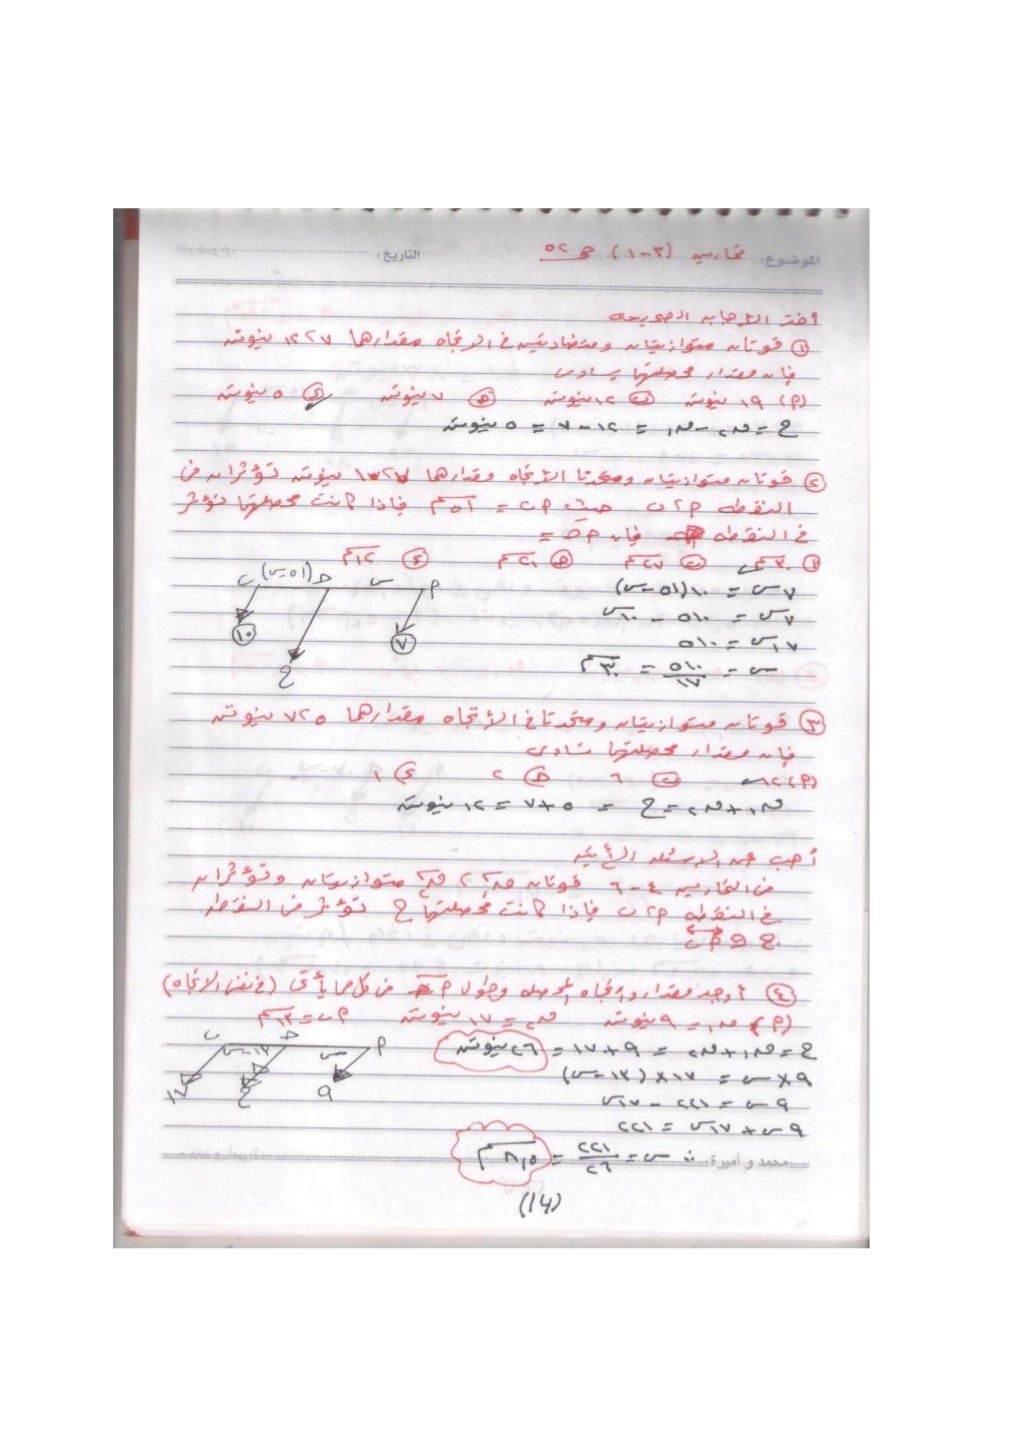 الموضوع: تمارين (٢-١) ص ٥٢ التاريخ:
أختر الأجابه الصحيحه
① قوتان متوازيتان ومتضادتين فى الاتجاه مقدارها ٧، ١٢ نيوتن
فإن مقدار محصلتها يساوى
(٢) ١٩ نيوتن (ب) ١٢ نيوتن (ج) ٧ نيوتن (د) ٥ نيوتن
ح = ق٢ - ق١ = ١٢ - ٧ = ٥ نيوتن
② قوتان متوازيتان ومتحدتا الأتجاه مقدارها ٧، ١٠ نيوتن تؤثران فى
النقطه ٢، ب حيث ٢ب = ٥١ سم فإذا كانت محصلتها تؤثر
فى النقطه فإن ٢حـ =
٣٠ سم (ب) ٢٧ سم (ج) ٢١ سم (د) ١٢ سم
٧س = ١٠(٥١-س)
٧س = ٥١٠ - ١٠س
١٧س = ٥١٠
س = ٥١٠/١٧ = ٣٠ سم
ب (٥١-س) حـ س ٢
١٠ ٧
ح
③ قوتان متوازيتان ومتحدتا فى الأتجاه مقدارهما ٥، ٧ نيوتن
فإن مقدار محصلتهما تساوى
(٢) ١٢ (ب) ٦ (ج) ٢ (د) ١
ق١ + ق٢ = ح = ٥ + ٧ = ١٢ نيوتن
أجب عن الاسئله الأتيه
فى التمارين ٤-٦ قوتان ق١، ق٢ متوازيتان وتؤثران
فى النقطه ٢، ب فإذا كانت محصلتها ح تؤثر فى النقطه
ح ∈ ٢ب
④ أوجد مقدار واتجاه المحصله وطول ٢حـ فى كل مما يأتى (فى نفس الاتجاه)
(٢) ق١ = ٩ نيوتن ق٢ = ١٧ نيوتن ٢ب = ١٣ سم
ح = ق١ + ق٢ = ٩ + ١٧ = ٢٦ نيوتن
٩×س = ١٧×(١٣-س)
٩س = ٢٢١ - ١٧س
٩س + ١٧س = ٢٢١
∴ س = ٢٢١/٢٦ = ٨,٥ سم
ب ١٣-س حـ س ٢
١٧ ح ٩
محمد و أميرة
(١٤)